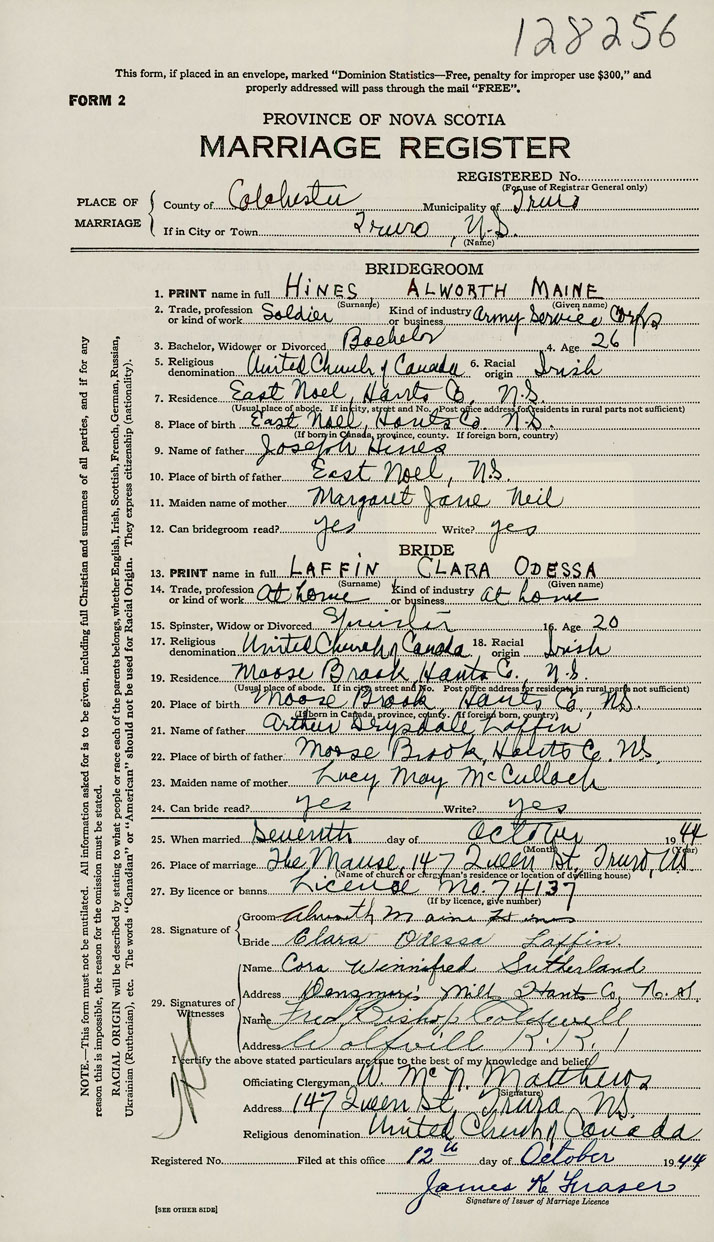 128256
This form, if placed in an envelope, marked "Dominion Statistics—Free, penalty for improper use $300," and
properly addressed will pass through the mail "FREE".
FORM 2
PROVINCE OF NOVA SCOTIA
MARRIAGE REGISTER
REGISTERED No.
(For use of Registrar General only)
PLACE OF MARRIAGE
County of Colchester Municipality of Truro
If in City or Town Truro, N.S.
(Name)
BRIDEGROOM
1. PRINT name in full HINES ALWORTH MAINE
(Surname) (Given name)
2. Trade, profession or kind of work Soldier Kind of industry or business Army Service Corps
3. Bachelor, Widower or Divorced Bachelor 4. Age 26
5. Religious denomination United Church of Canada 6. Racial origin Irish
7. Residence East Noel, Hants Co, N.S.
(Usual place of abode. If in city, street and No. Post office address for residents in rural parts not sufficient)
8. Place of birth East Noel, Hants Co. N.S.
(If born in Canada, province, county. If foreign born, country)
9. Name of father Joseph Hines
10. Place of birth of father East Noel, N.S.
11. Maiden name of mother Margaret Jane Neil
12. Can bridegroom read? yes Write? yes
BRIDE
13. PRINT name in full LAFFIN CLARA ODESSA
(Surname) (Given name)
14. Trade, profession or kind of work At home Kind of industry or business at home
15. Spinster, Widow or Divorced Spinster 16. Age 20
17. Religious denomination United Church of Canada 18. Racial origin Irish
19. Residence Moose Brook, Hants Co., N.S.
(Usual place of abode. If in city, street and No. Post office address for residents in rural parts not sufficient)
20. Place of birth Moose Brook, Hants Co, N.S.
(If born in Canada, province, county. If foreign born, country)
21. Name of father Arthur Drysdale Laffin
22. Place of birth of father Moose Brook, Hants Co. N.S.
23. Maiden name of mother Lucy May McCulloch
24. Can bride read? yes Write? yes
25. When married Seventh day of October 1944
(Month) (Year)
26. Place of marriage The Manse, 147 Queen St, Truro, N.S.
(Name of church or clergyman's residence or location of dwelling house)
27. By licence or banns Licence No. 74137
(If by licence, give number)
28. Signature of
Groom Alworth Maine Hines
Bride Clara Odessa Laffin.
29. Signatures of Witnesses
Name Cora Winnifred Sutherland
Address Densmore's Mill Hants Co, N.S.
Name Fred Bishop Coldwell
Address Wolfville R.R. 1
I certify the above stated particulars are true to the best of my knowledge and belief.
Officiating Clergyman W. McN. Matthews
(Signature)
Address 147 Queen St, Truro, N.S.
Religious denomination United Church of Canada
Registered No. Filed at this office 12th day of October 1944
James K Fraser
Signature of Issuer of Marriage Licence
[SEE OTHER SIDE]
NOTE.—This form must not be mutilated. All information asked for is to be given, including full Christian and surnames of all parties, and if for any
reason this is impossible, the reason for the omission must be stated.
RACIAL ORIGIN will be described by stating to what people or race each of the parents belongs, whether English, Irish, Scottish, French, German, Russian,
Ukrainian (Ruthenian), etc. The words "Canadian" or "American" should not be used for Racial Origin. They express citizenship (nationality).